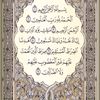 بِسْمِ ٱللَّهِ ٱلرَّحْمَٰنِ ٱلرَّحِيمِ
ٱلْحَمْدُ لِلَّهِ رَبِّ ٱلْعَٰلَمِينَ
ٱلرَّحْمَٰنِ ٱلرَّحِيمِ مَٰلِكِ يَوْمِ ٱلدِّينِ
إِيَّاكَ نَعْبُدُ وَإِيَّاكَ نَسْتَعِينُ
ٱهْدِنَا ٱلصِّرَٰطَ ٱلْمُسْتَقِيمَ صِرَٰطَ ٱلَّذِينَ أَنْعَمْتَ
عَلَيْهِمْ غَيْرِ ٱلْمَغْضُوبِ عَلَيْهِمْ
وَلَا ٱلضَّآلِّينَ